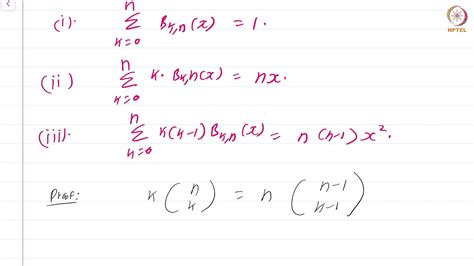 NPTEL
(i). $\sum_{k=0}^{n} B_{k,n}(x) = 1.$
(ii) $\sum_{k=0}^{n} k \cdot B_{k,n}(x) = nx.$
(iii). $\sum_{k=0}^{n} k(k-1) B_{k,n}(x) = n(n-1)x^2.$
Proof: $k \binom{n}{k} = n \binom{n-1}{k-1}$